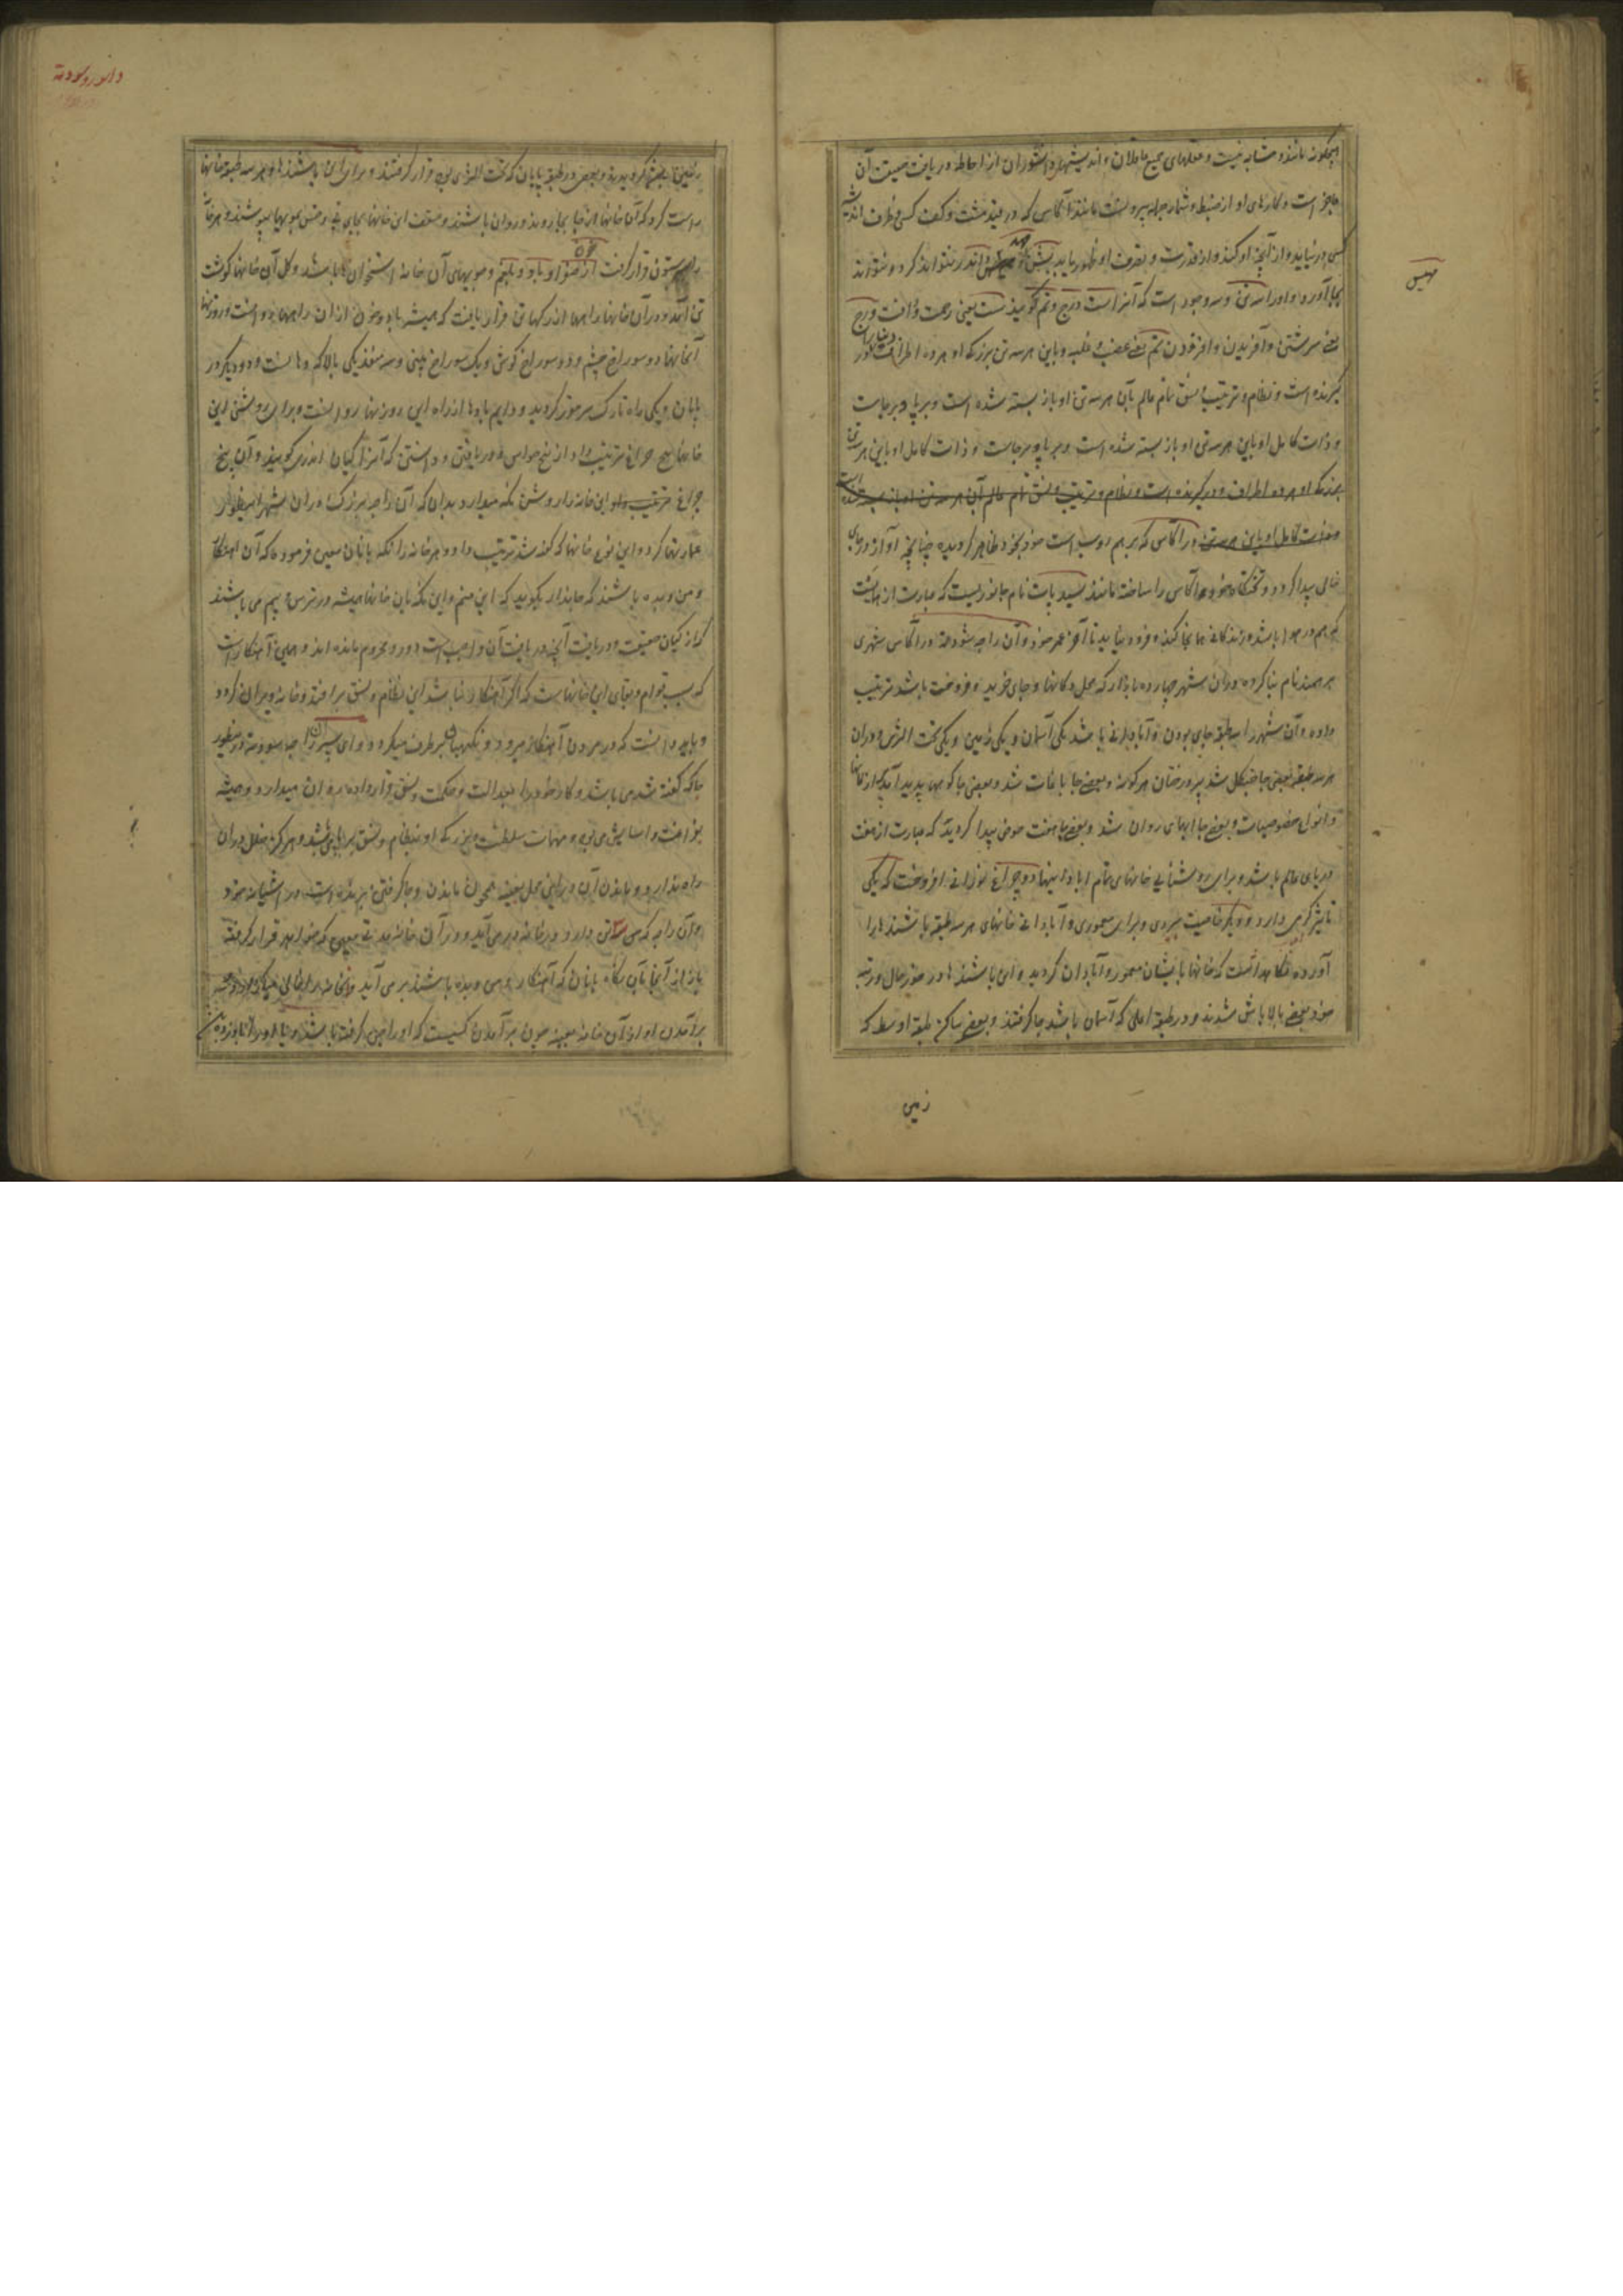 هیچگونه مانند و مشابه نیست و عقلهای جمیع عاقلان و اندیشهای دانشوران از احاطه دریافت حقیقت آن
عاجز است و کارهای او از ضبط و شمار جمله بیرونست مانند آکاس که در قید مشت و کف کسی و ظرف اندیشه
کسی در نیاید و از آنچه او کند و از قدرت و تصرف او بظهور یابد بشن و مهیش و اندر نتوانند کرد و نتوانند
بجا آورد و او را سه تن و سه وجود است که آنرا ست و رج و تم گویند ست یعنی رحمت و رأفت و رج
یعنی سرشتن و آفریدن و افزودن تم یعنی غضب و غلبه و باین هر سه تن بزرگ او هر ده اطراف را در
گیرنده است و نظام و ترتیب و نسق تمام عالم بآن هر سه تن او باز بسته شده است و برپا و برجاست
و ذات کامل او باین هر سه تن او باز بسته شده است و برپا و برجاست و ذات کامل او باین هر سه تن
بزرگ او هر ده اطراف در گیرنده است و نظام و ترتیب و نسق تمام عالم بآن هر سه تن او باز بسته شده است
و ذات کامل او باین هر سه تن در آکاس که برهم روپ است خود بخود ظاهر گردیده چنانچه آواز در جای
خالی پیدا گردد و تختگاه خود هوا آکاس را ساخته مانند سید پات نام جانوریست که عبارت از
که هم در هوا باشد و زندگانی همانجا کند و فرود نیاید تا آخر عمر خود و آن راجه شودهه در آکاس شهری
برهمند نام بنا کرده و در آن شهر چهارده بازار که محل دکانها و جای خرید و فروخت باشد ترتیب
داده و آن شهر را سه طبقه جای بودن و آبادانی باشد یکی آسمان و یکی زمین و یکی تحت الثری و در آن
هر سه طبقه بعضی جا جنگل شد پر درختان هر گونه و بعضی جا باغات شد و بعضی جا کوهها پدید آمد پر از کانها
و انواع خصوصیات و بعضی جا آبهای روان شد و بعضی جا هفت حوض پیدا گردید که عبارت از هفت
دریای عالم باشد و برای روشنائی خانهای تمام آبادانیها دو چراغ نورانی افروخت که یکی
تاثیر گرمی دارد و دیگر خاصیت سردی و برای معموری و آبادانی خانهای هر سه طبقه باشندها را
آورده نگاهداشت که خانها بایشان معمور و آبادان گردید و این باشندها در خور حال و رتبه
خود بعضی بالا باش شدند و در طبقه اعلی که آسمان باشد جا گرفتند و بعضی ساکن طبقه اوسط که
زمین
مهیش
دانورودهه
زمین باشد گردیدند و بعضی در طبقه پایان که تحت الثری بود قرار گرفتند و برای این باشندها در هر سه طبقه خانها
راست کرد که آن خانها از جا بجا روند و روان باشند و سقف این خانها بجای نی و خس بمویها بپوشند و هر خانه
بر ستون قرار گرفت از صفرا و باد و بلغم و چوبهای آن خانه استخوان ها باشد و گل آن خانها گوشت
تن آمد و در آن خانها راهها از رگها تن قرار یافت که همیشه باد و خون از آن راهها
آنخانها دو سوراخ چشم و دو سوراخ گوش و یک سوراخ بینی و سه منفذ یکی بالا که دهانست و دو دیگر در
پایان و یکی راه تارک سر مقرر گردید و دایم بادها از راه این روزنها رود است و برای روشنی این
خانها پنج چراغ ترتیب داد از پنج حواس و دریافتن و دانستن که آنرا گیان اندری گویند و آن پنج
چراغ این خانه را روشن نگه میدارد بدان که آن راجه بزرگ در آن شهر اینطور
عمارتها کرد و این نوع خانها که گفته شد ترتیب داد و هر خانه را نگه بانان معین فرموده که آن اهنکار
و من و بده باشند که جاندار بگوید که این منم و این نگه بان خانها همیشه در ترس و بیم می باشند
که از گیان حقیقت و دریافت آنچه دریافت آن واجب است دور و محروم مانده اند و همین اهنکار است
که سبب قوام و بقای این خانهاست که اگر اهنکار نباشد این نظام و نسق برافتد و خانه ویران گردد
و باید دانست که در مردن اهنکار میرود و نگهبانی برطرف میگردد و ای پسر آن راجه شودهه در حضور
جا که گفته شد می باشد و کار خود را بعدالت و حکمت و نسق قرار داده بدان میدارد و همیشه
بفراغت و آسایش می بود و مهمات سلطنت بزرگ او بنظام و نسق برپا می باشد و هرگز خلل در آن
راه ندارد و ماندن آن در این محل بعینه همچون ماندن و جا گرفتن پرنده است در آشیانه خود
و آن راجه که می تن دارد در خانه در می آید و در آن خانه مدتی معین که خواهد قرار گرفته
باز از آنجا بآن نگاه بانان که اهنکار و من و بده باشند بر می آید و خانه را خالی میگذارد و
برآمدن او از آن خانه بعینه چون برآمدن کسیست که او را جن گرفته باشد و